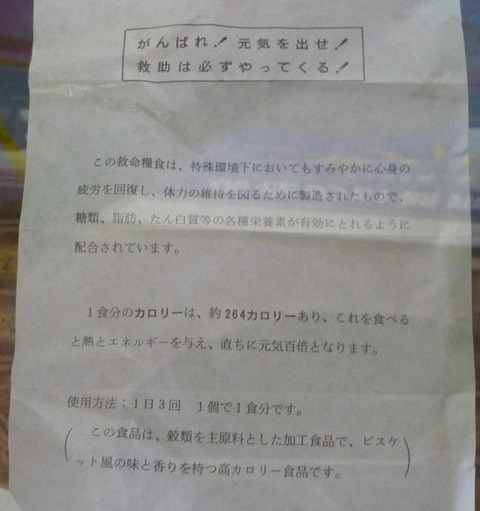 がんばれ！元気を出せ！
救助は必ずやってくる！
この救命糧食は、特殊環境下においてもすみやかに心身の
疲労を回復し、体力の維持を図るために製造されたもので、
糖類、脂肪、たん白質等の各種栄養素が有効にとれるように
配合されています。
１食分のカロリーは、約264カロリーあり、これを食べる
と熱とエネルギーを与え、直ちに元気百倍となります。
使用方法：１日３回　１個で１食分です。
（この食品は、穀類を主原料とした加工食品で、ビスケ
ット風の味と香りを持つ高カロリー食品です。）